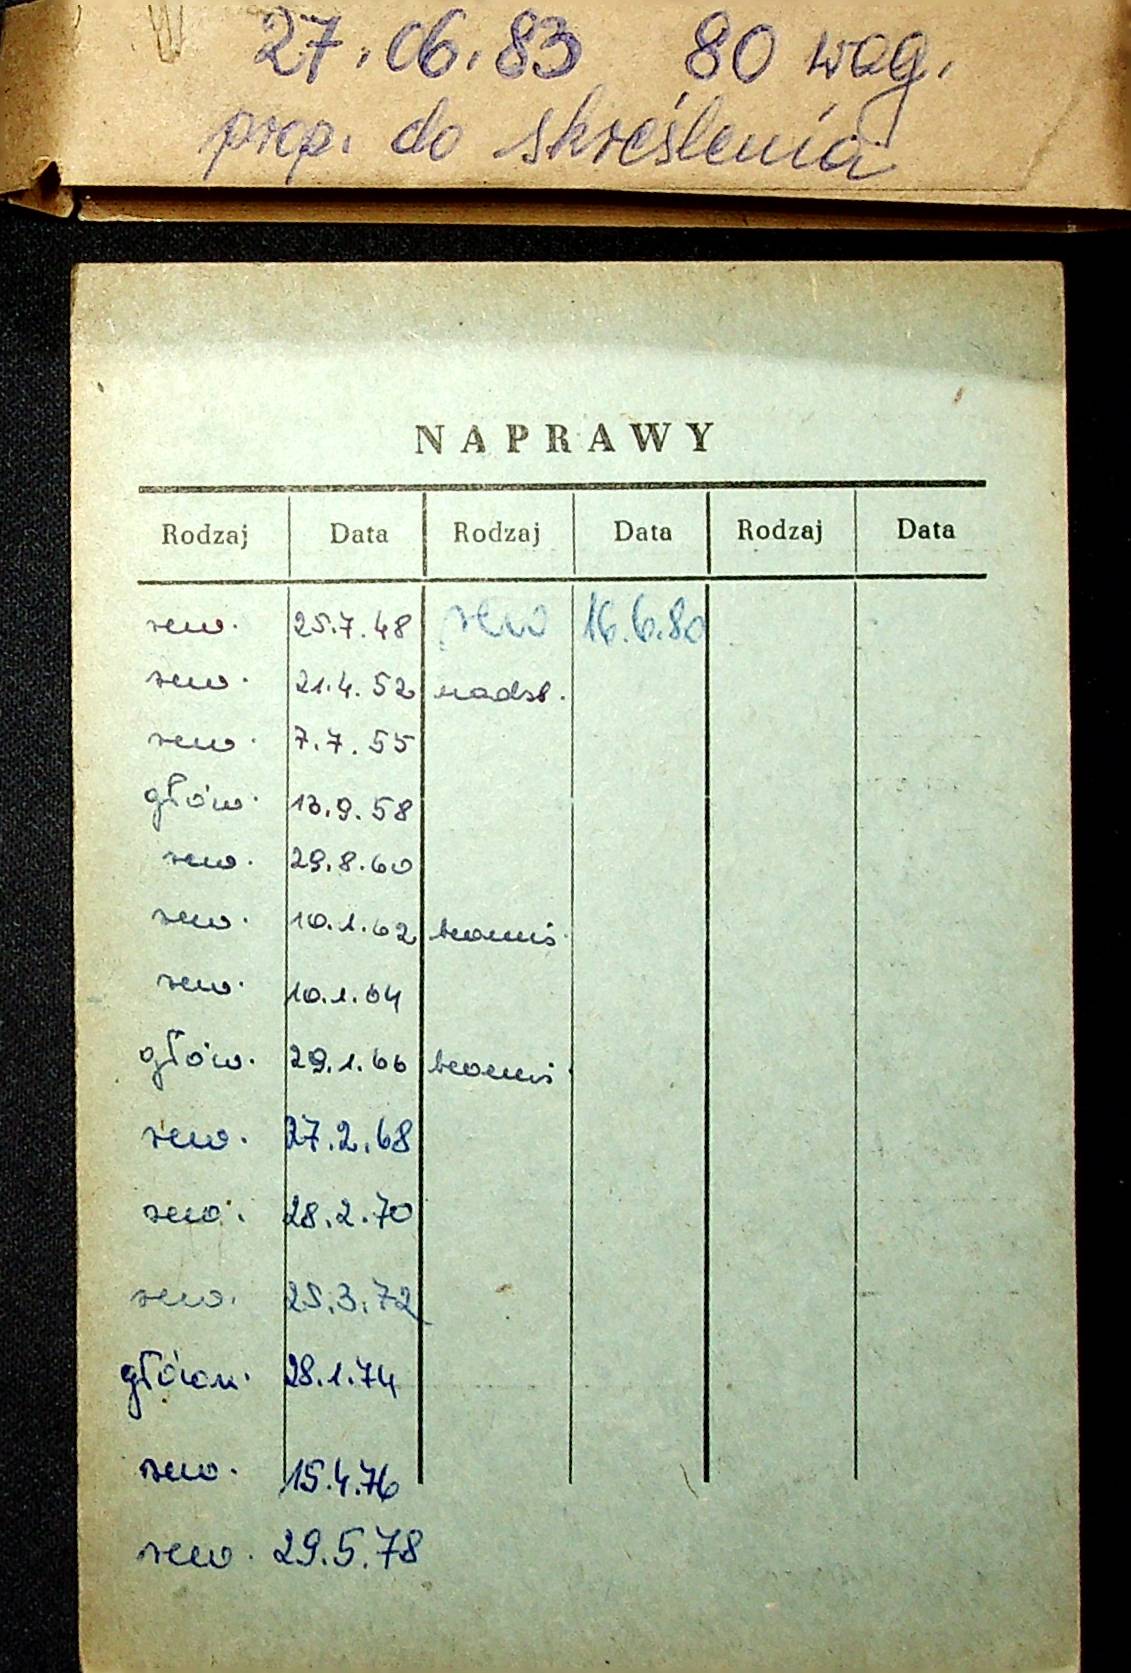 27.06.83 80 wag.
prop. do skreślenia
NAPRAWY
Rodzaj Data Rodzaj Data Rodzaj Data
rew. 25.7.48 rew 16.6.80
rew. 21.4.52 nadsł.
rew. 7.7.55
głów. 13.9.58
rew. 29.8.60
rew. 10.1.62
rew. 10.1.64
głów. 29.1.66
rew. 27.2.68
rew. 28.2.70
rew. 25.3.72
główn. 28.1.74
rew. 15.4.76
rew. 29.5.78